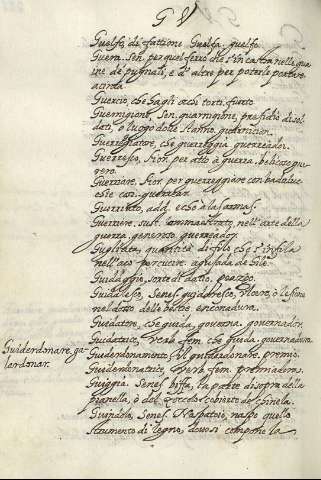 G V
Guelfo, di fattione Guelfa. guelfo.
Guera. Sen. per quel ferro che s'incastra nelle gua
ine de pugnali, e d'altre per poterle portare
acinta.
Guercio, che há gli occhi torti. tuerto.
Guernigione, Sen. guarnigione, presidio di sol
dati, o luogo dove stanno, guarnicion.
Guerreggiatore, che guerreggia, guerreador.
Guerresco, Fior. per atto à guerra. belicoso gue
rrero.
Guerriare. Fior. per guerreggiare con badaluc
chi e con
Guerriato, add.
Guerriere, sust. ammaestrato, nell'arte della
guerra, generoso, guerreador.
Gugliata, quantità di filo che s'infila
nell'aco per cucire. agujada de hilo.
Guidalesco, Senes. guidaresco, ulcere, ò lesione
nel dosso delle bestie,
Guidatore, che guida, governa, governador.
Guidatrice, verb. fem. che guida. governadora.
Guiderdonare, ga
lardonar.
Guiderdonamento, il guiderdonare, premio.
Guiderdonatrice, verb. fem. premiadora.
Guiggia. Senes. la parte di sopra della
pianella, ò del zoccolo
Guindolo, Senes. Naspatoio, naspo quello
strumento di legno, dove si compone la